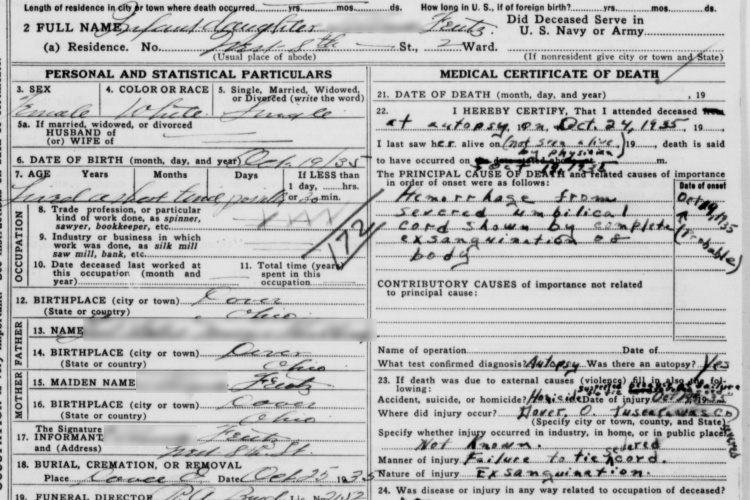 Length of residence in city or town where death occurred yrs. mos. ds.
How long in U. S., if of foreign birth? yrs. mos. ds.
2 FULL NAME Infant daughter Feutz
Did Deceased Serve in
U. S. Navy or Army
(a) Residence. No. West 8th St., 2 Ward.
(Usual place of abode)
(If nonresident give city or town and State)
PERSONAL AND STATISTICAL PARTICULARS
3. SEX
4. COLOR OR RACE
5. Single, Married, Widowed,
or Divorced (write the word)
Female White Single
5a. If married, widowed, or divorced
HUSBAND of
(or) WIFE of
6. DATE OF BIRTH (month, day, and year) Oct 19/35
7. AGE Years Months Days If LESS than
1 day, hrs.
or min.
Lived a short time
OCCUPATION
8. Trade, profession, or particular
kind of work done, as spinner,
sawyer, bookkeeper, etc.
9. Industry or business in which
work was done, as silk mill
saw mill, bank, etc.
172
10. Date deceased last worked at
this occupation (month and
year)
11. Total time (years)
spent in this
occupation
12. BIRTHPLACE (city or town) Dover
(State or country) Ohio
FATHER
13. NAME
14. BIRTHPLACE (city or town) Dover
(State or country) Ohio
MOTHER
15. MAIDEN NAME Feutz
16. BIRTHPLACE (city or town) Dover
(State or country) Ohio
The Signature
17. INFORMANT Feutz
and (Address) West 8th St.
18. BURIAL, CREMATION, OR REMOVAL
Place Dover O Date Oct 25 1935
19. FUNERAL DIRECTOR Lic. No.
MEDICAL CERTIFICATE OF DEATH
21. DATE OF DEATH (month, day, and year) , 19
22. I HEREBY CERTIFY, That I attended deceased
at autopsy on Oct. 24, 1935 19
I last saw her alive on (not seen alive) 19 death is said
by physician)
to have occurred on m.
The PRINCIPAL CAUSE OF DEATH and related causes of importance
in order of onset were as follows:
Date of onset
Hemorrhage from
severed umbilical
cord shown by complete
exsanguination of
body
Oct 19, 1935
(Probable)
CONTRIBUTORY CAUSES of importance not related
to principal cause:
Name of operation Date of
What test confirmed diagnosis? Autopsy Was there an autopsy? Yes
23. If death was due to external causes (violence) fill in also the following:
Accident, suicide, or homicide? Homicide Date of injury
Where did injury occur? Dover, O. Tuscarawas Co
(Specify city or town, county, and State)
Specify whether injury occurred in industry, in home, or in public place
Not Known.
Manner of injury Failure to tie severed cord.
Nature of injury Exsanguination.
24. Was disease or injury in any way related to occupation of deceased?